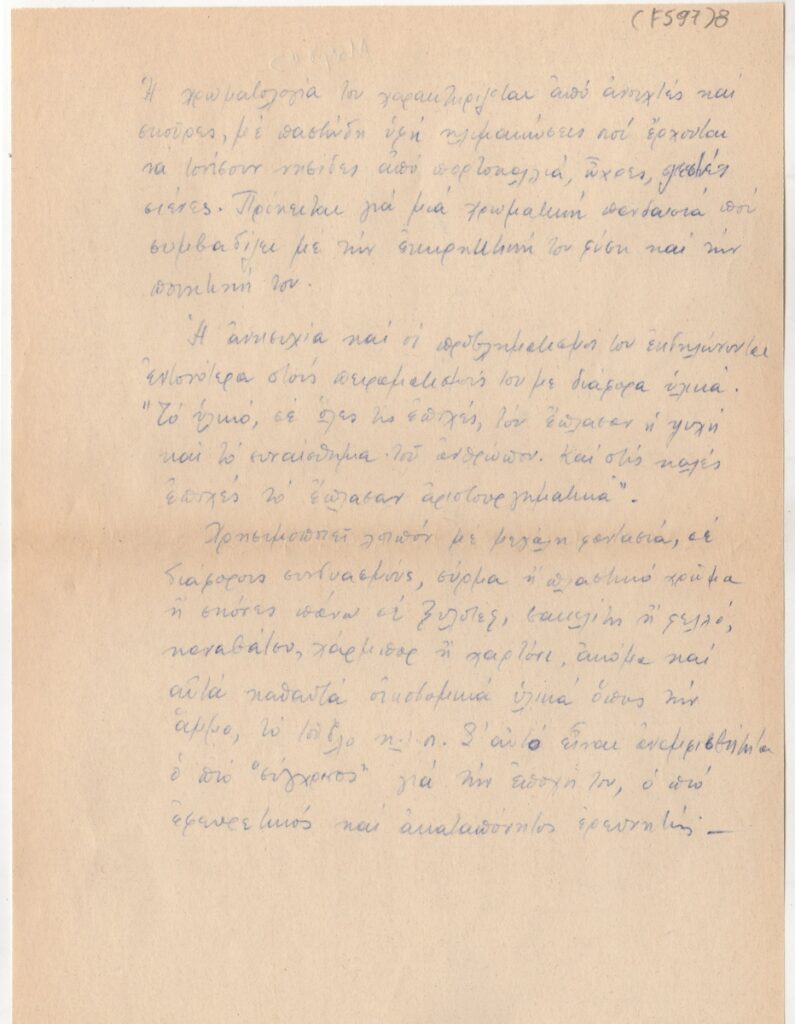 (F597)8
Ἡ χρωματολογία του χαρακτηρίζεται ἀπό ἀνοιχτές καί
σκοῦρες, μέ παστώδη ὑφή κλιμακώσεις πού ἔρχονται
νά τονίσουν νησίδες ἀπό πορτοκαλλιά, ὦχρες,
σιένες. Πρόκειται γιά μιά χρωματική πανδαισία πού
συμβαδίζει μέ τήν ἐκρηκτική του φύση καί τήν
ποιητική του.
Ἡ ἀνησυχία καί οἱ προβληματισμοί του ἐκδηλώνονται
ἐντονότερα στούς πειραματισμούς του μέ διάφορα ὑλικά.
"Τό ὑλικό, σέ ὅλες τίς ἐποχές, τόν ἔπλασαν ἡ ψυχή
καί τό συναίσθημα τοῦ ἀνθρώπου. Καί στίς καλές
ἐποχές τό ἔπλασαν ἀριστουργηματικά".
Χρησιμοποιεῖ λοιπόν μέ μεγάλη φαντασία, σέ
διάφορους συνδυασμούς, σύρμα ἤ πλαστικό χρῶμα
ἤ σκόνες πάνω σέ ξυλοτέξ, βακελίτη ἤ φελλό,
καναβάτσο, χάρμπορ ἤ χαρτόνι, ἀκόμα καί
αὐτά καθαυτά οἰκοδομικά ὑλικά ὅπως τήν
ἄμμο, τό τοῦβλο κ.λ.π. Σ' αὐτό εἶναι ἀναμφισβήτητα
ὁ πιό "σύγχρονος" γιά τήν ἐποχή του, ὁ πιό
ἐφευρετικός καί ἀκαταπόνητος ἐρευνητής –